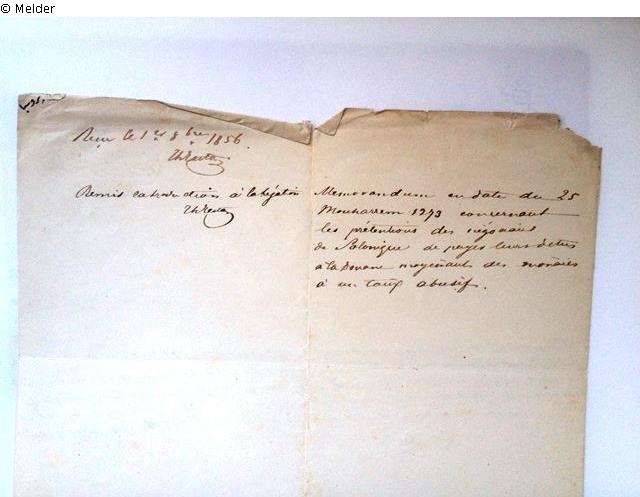 © Melder
Reçu le 1er 8bre 1856.
Remis la traduction à la légation
Memorandum en date du 25
Mouharrem 1273 concernant
les prétentions des négociants
de Salonique de payer leurs dettes
à la Douane moyennant des monnaies
à un taux abusif.